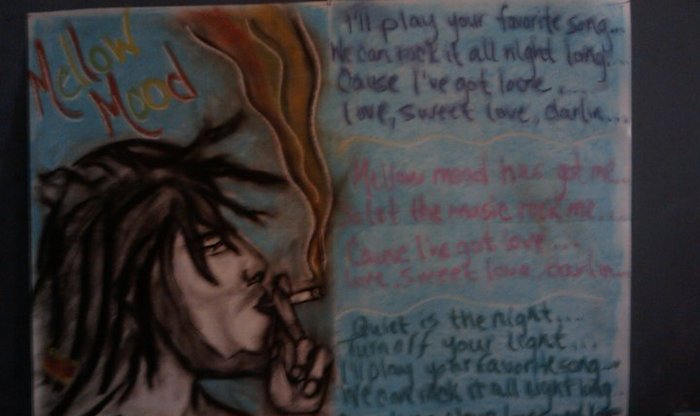 Mellow
Mood
I'll play your favorite song...
We can rock it all night long!...
Cause I've got love....
Love, sweet love, darlin....
Mellow mood has got me...
So let the music rock me....
Cause I've got love....
Love, sweet love darlin....
Quiet is the night....
Turn off your light...
I'll play your favorite song...
We can rock it all night long...